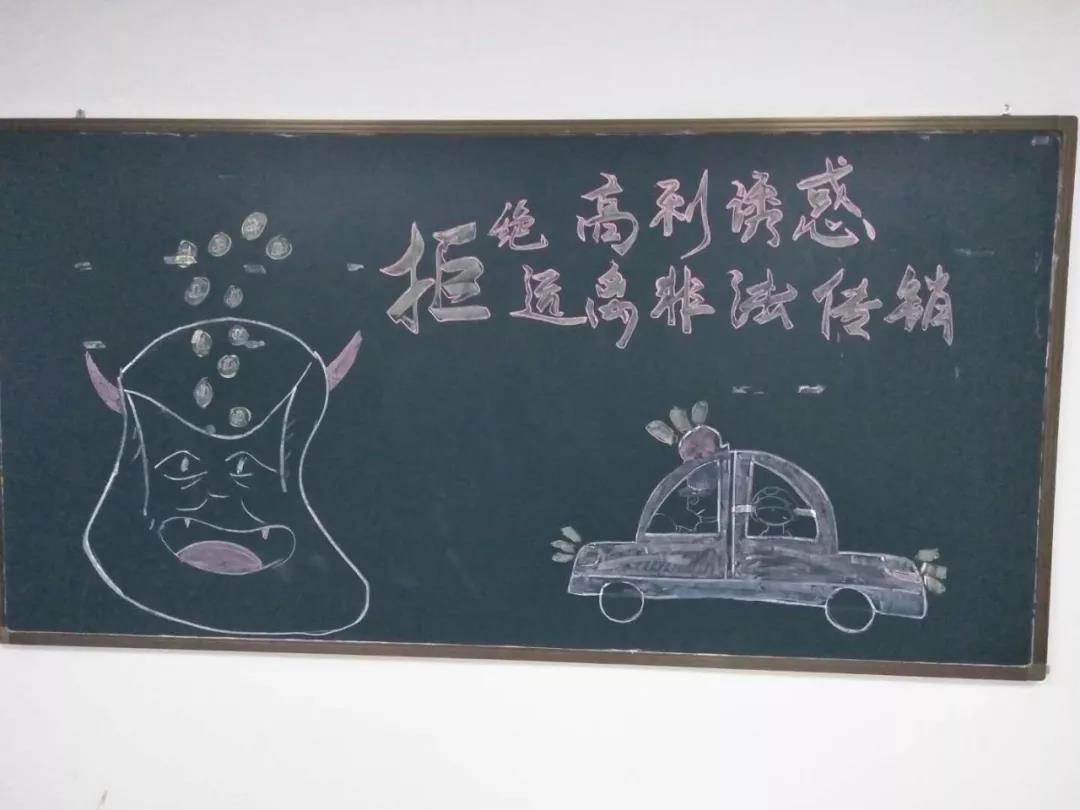 拒绝高利诱惑
远离非法传销